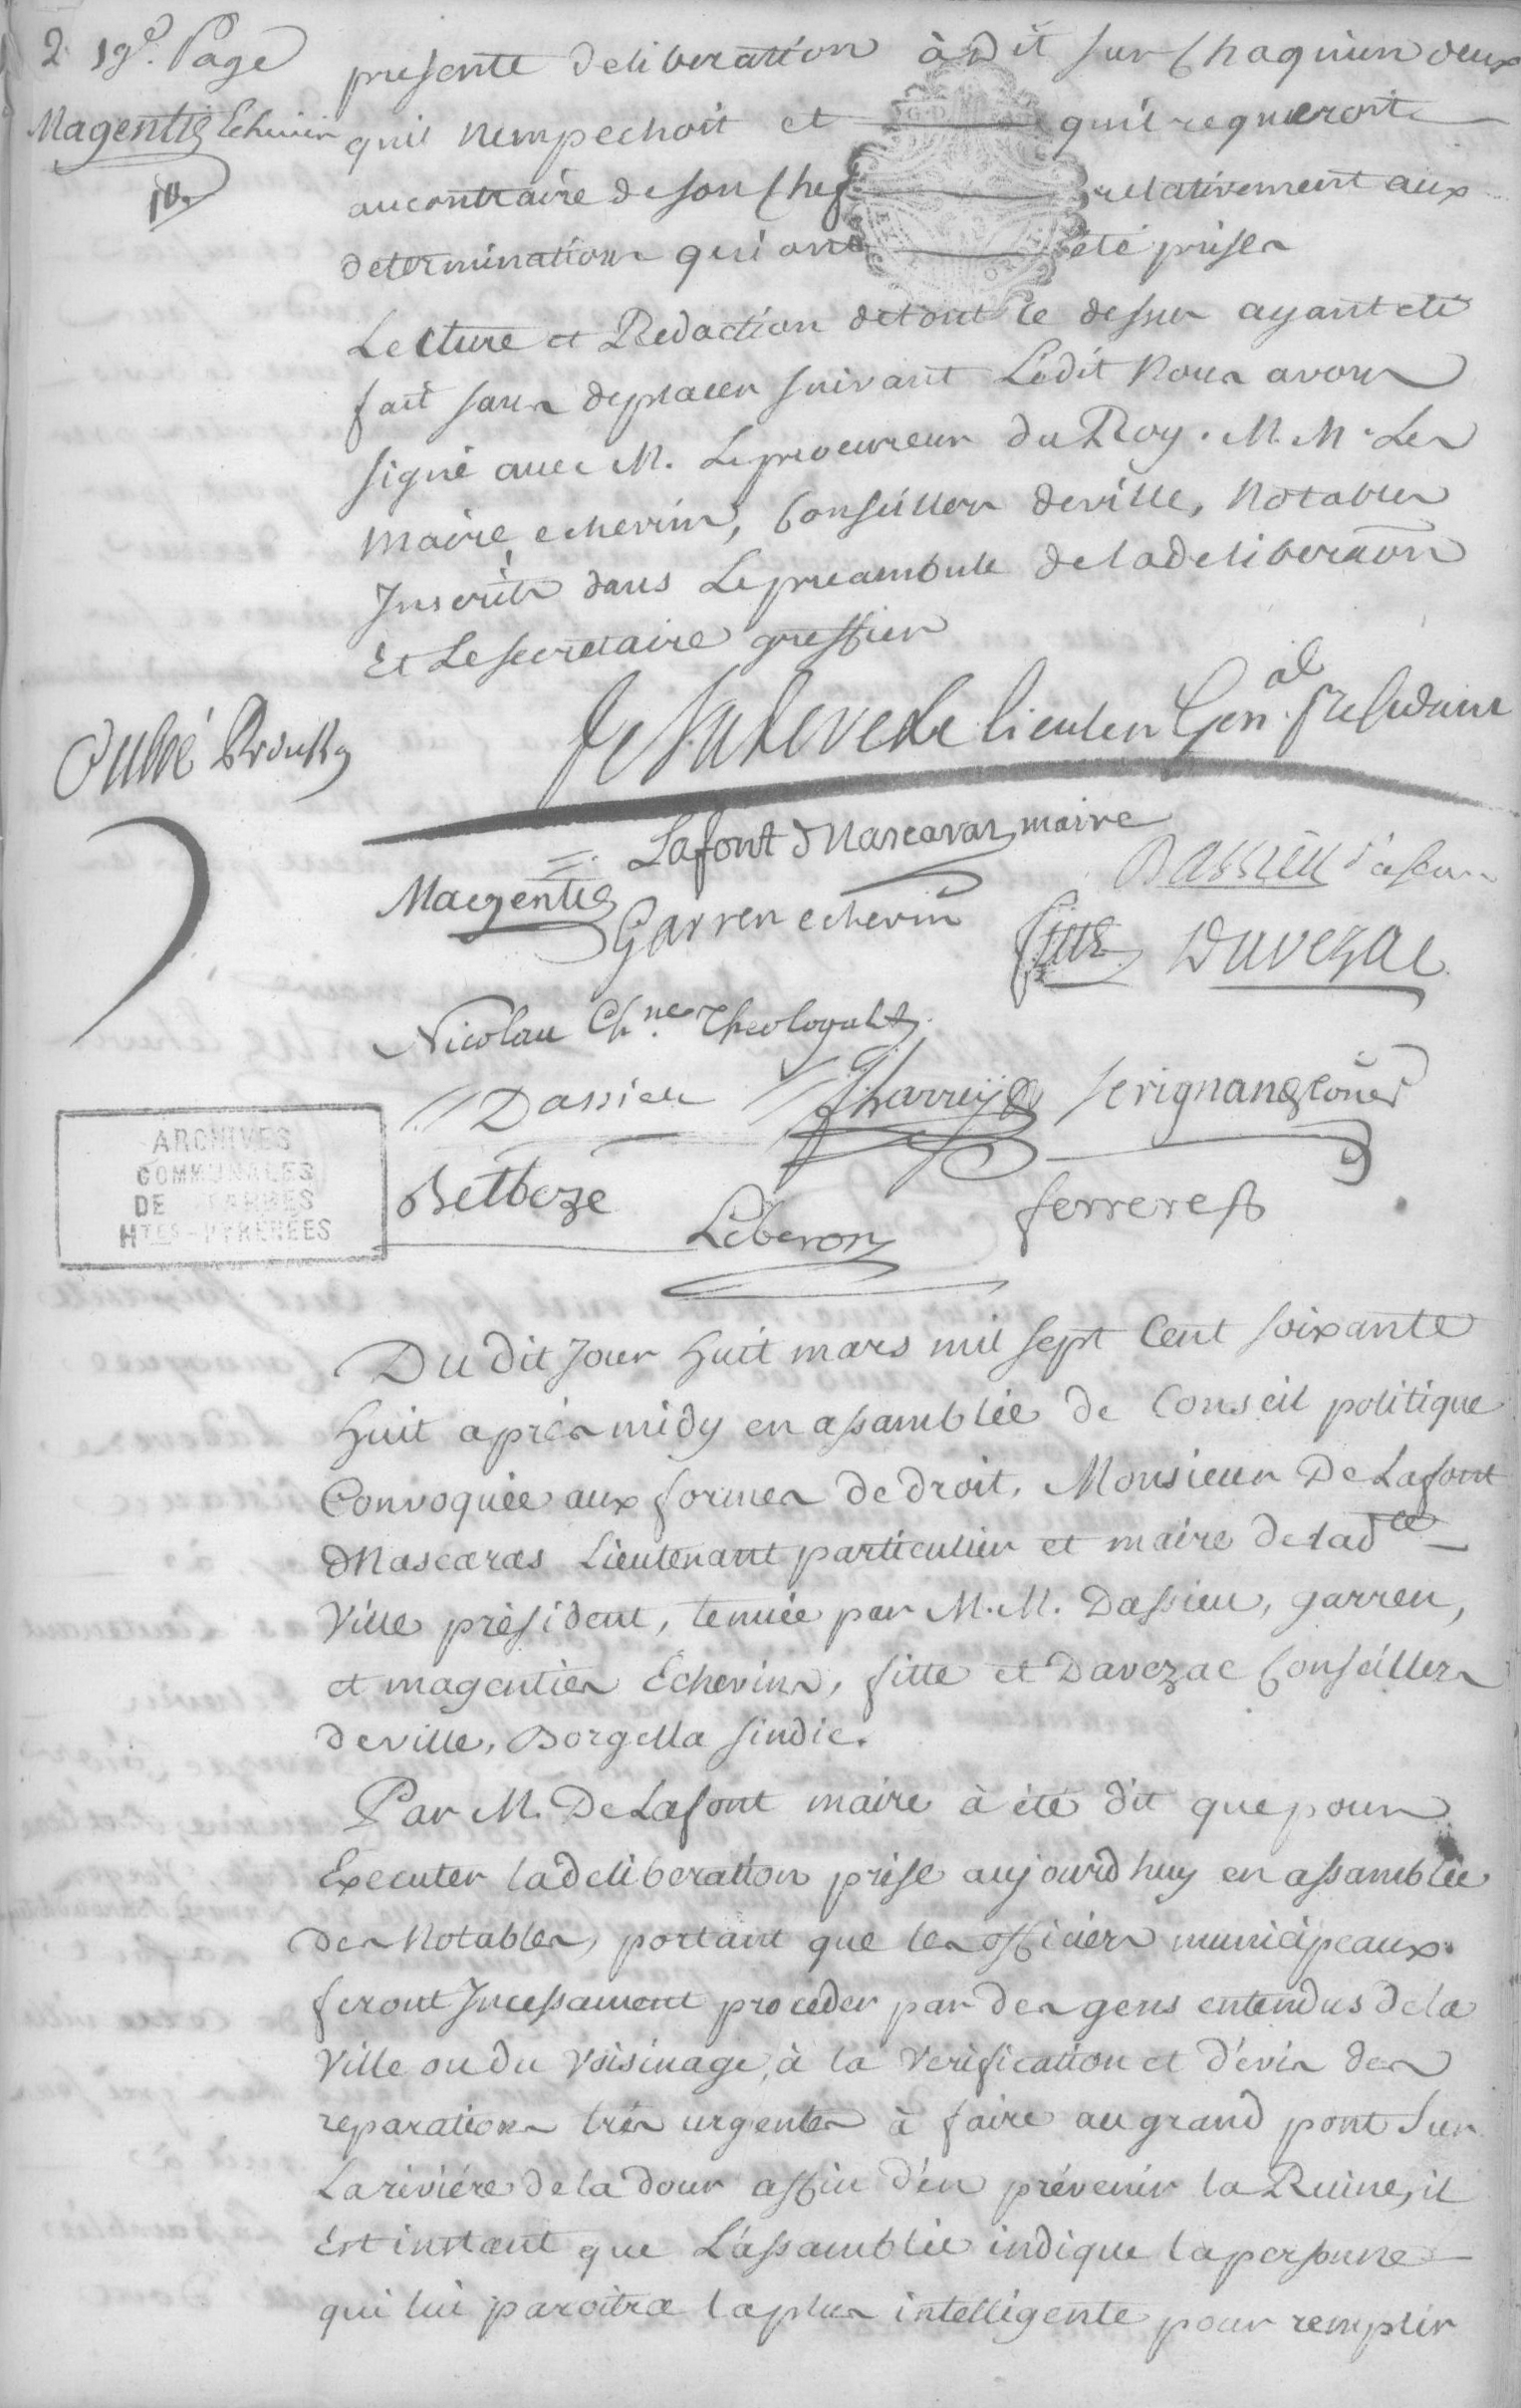 2 19e. Page
Magentis Echevin
presente deliberation à dit sur Chaqu'un deux
quil nempechoit et qu'il requeroit
au contraire de son Chef relativement aux
determinations qui ont été prises
Lecture et Redaction detout ce dessus ayant eté
fait sans deplacer suivant Lédit Nous avons
signé avec M. Le procureur du Roy. M. M. Les
Maire echevins, Conseillers deville, Notables
Inscrits dans Le preambule deladeliberaõn
Et Lesecretaire greffier
lieuten Gen.al president
Lafont d Mascaras maire
Magentis
Garren echevin
Dassieu
fitte
Davezac
Nicolau Chne Theologal
Dassieu
Serignan
Betbeze
Leberon
ferrere
ARCHIVES
COMMUNALES
DE TARBES
HTES-PYRENEES
Du dit Jour huit mars mil sept Cent soixante
huit après midy en assamblée de Conseil politique
Convoquée aux formes de droit, Monsieur De Lafont
d Mascaras Lieutenant particulier et maire delad.te
Ville président, tenuée par M.M. Dassieu, garren,
et magenties Echevins, fitte et Davezac Conseillers
deville, Borgella sindic.
Par M. De Lafont maire à été dit que pour
Executer ladeliberation prise aujourdhuy en assamblée
des Notables, portant que les officiers municipeaux
feront Incessament proceder par des gens entendus dela
Ville ou du Voisinage, à la Verification et d'evis des
reparations très urgentes à faire au grand pont sur
La riviére de la dour affin d'en prévenir la Ruine, il
Est instant que L'assamblée indique lapersonne
qui lui paroitra laplus intelligente pour remplir